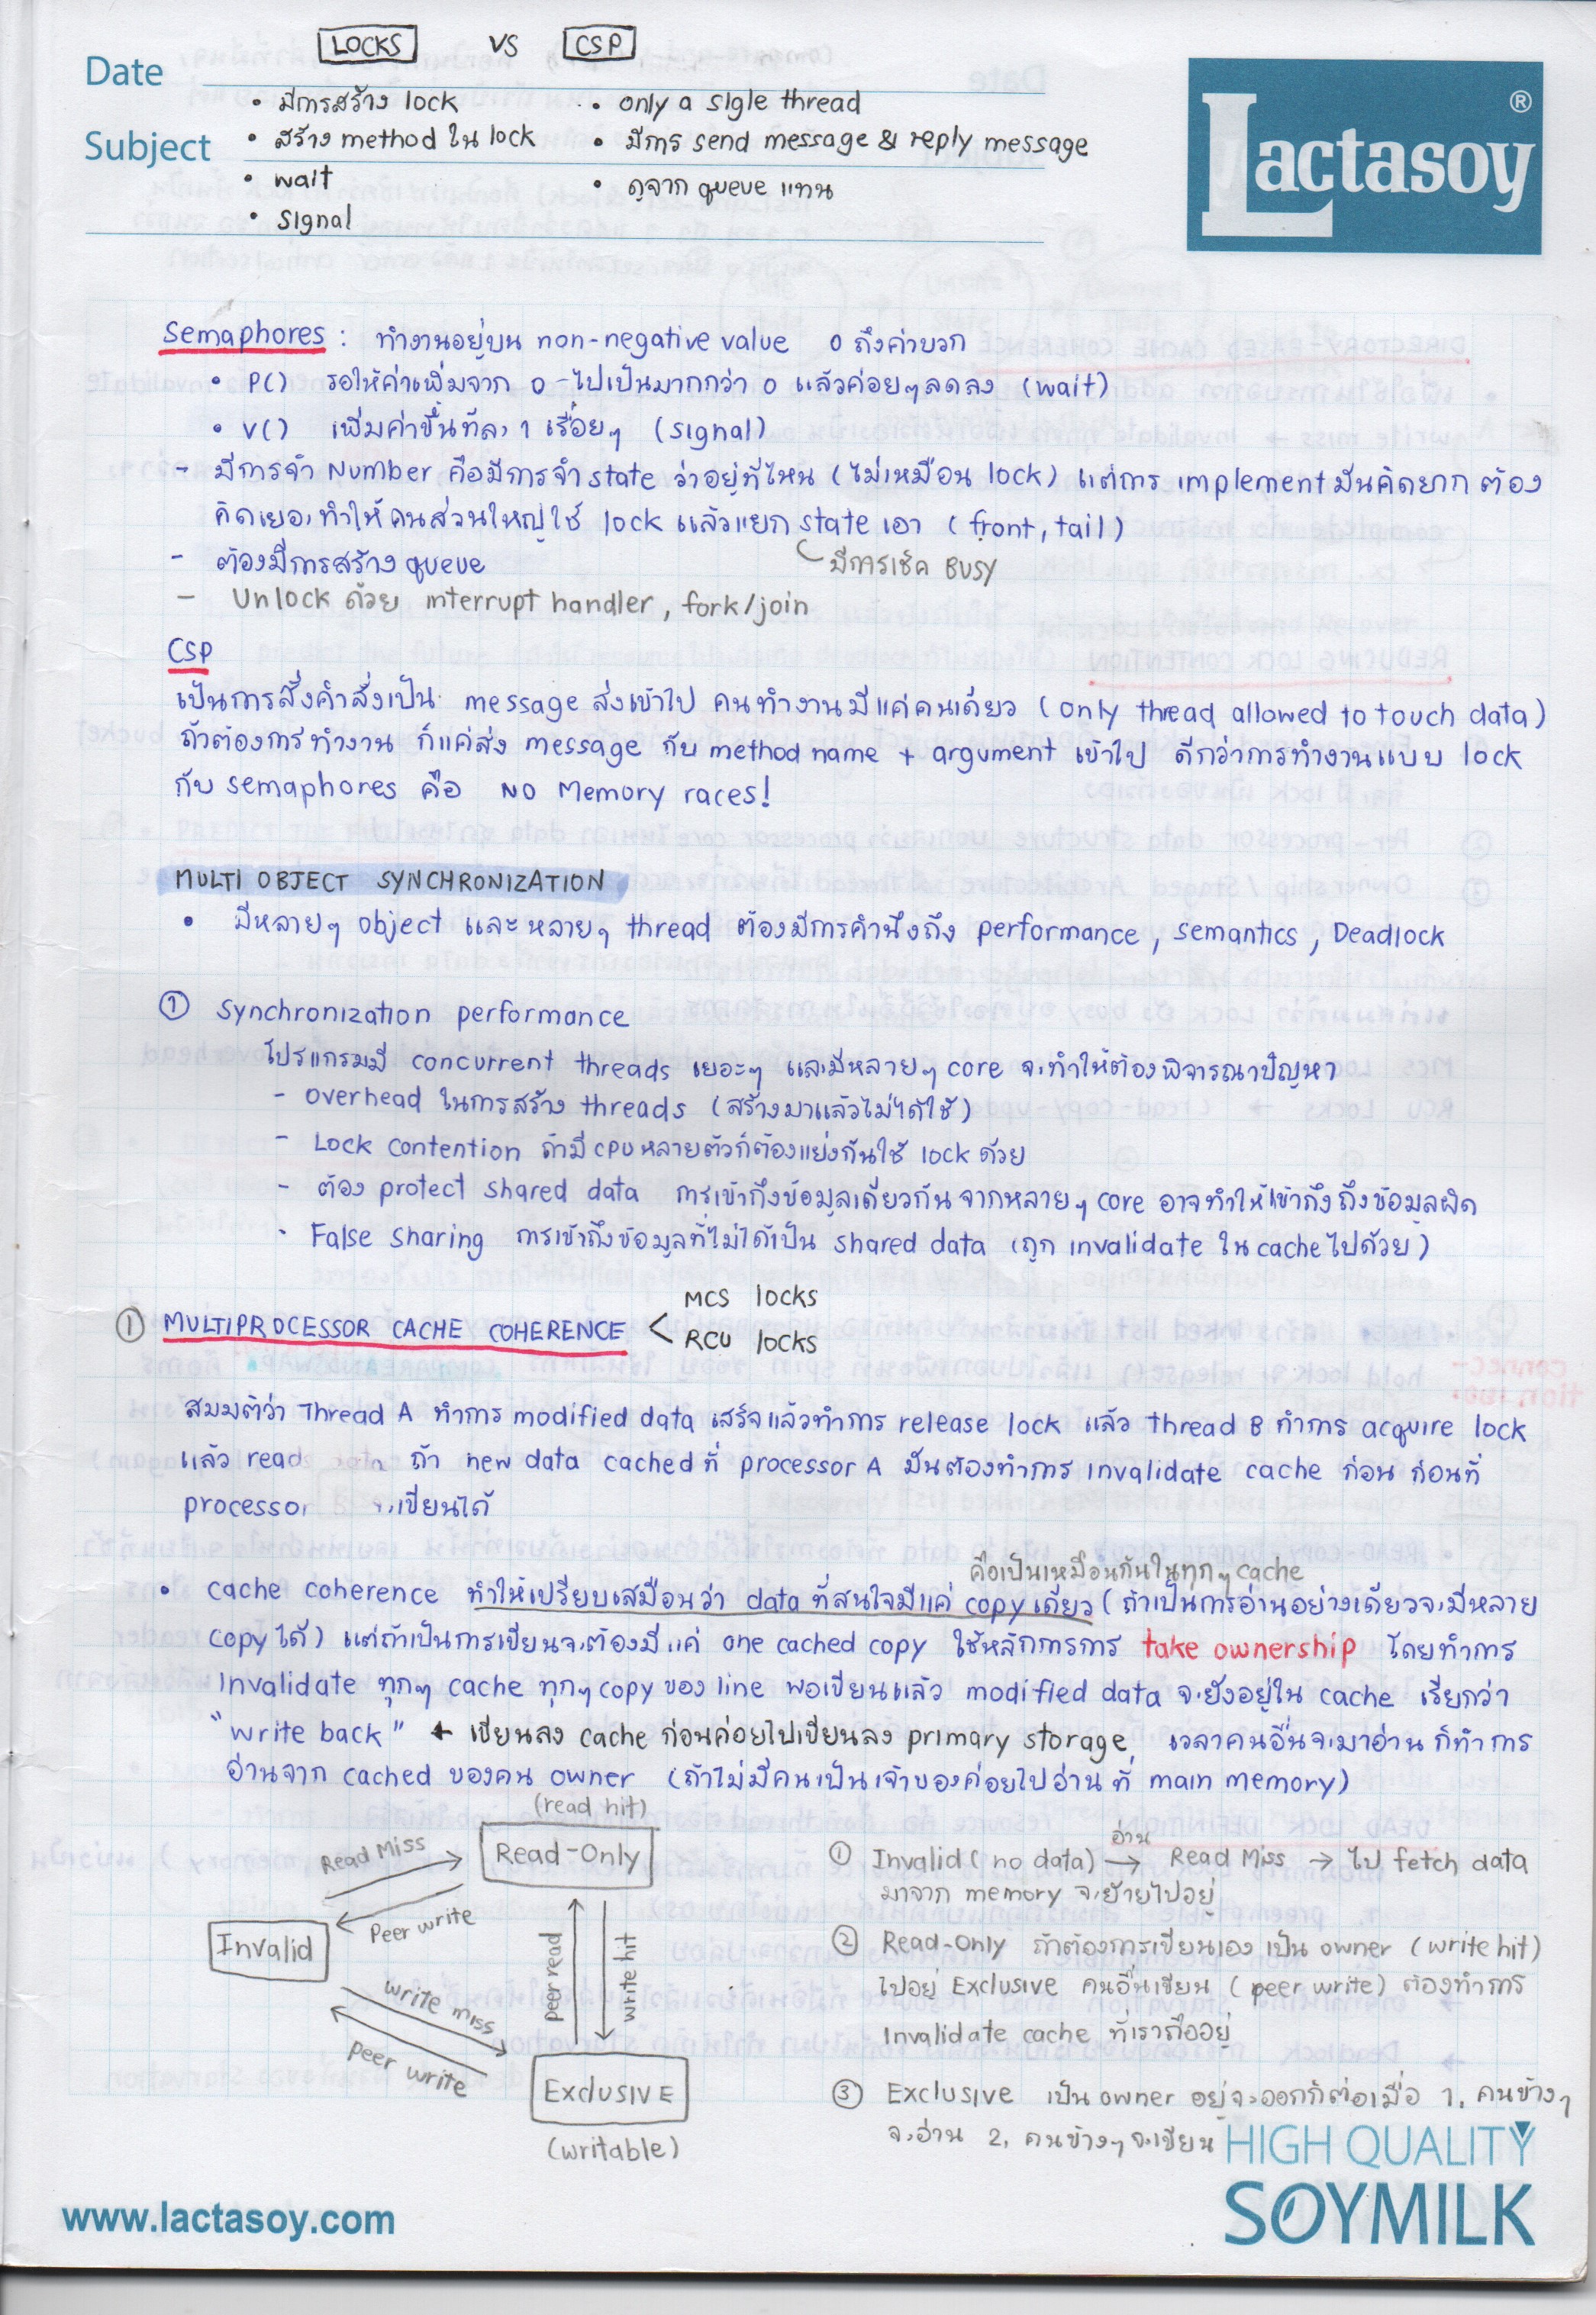 LOCKS VS CSP
Date
Subject
• มีการสร้าง lock
• สร้าง method ใน lock
• wait
• signal
• only a sigle thread
• มีการ send message & reply message
• ดูจาก queue แทน
Lactasoy ®
Semaphores : ทำงานอยู่บน non-negative value 0 ถึงค่าบวก
• P() รอให้ค่าเพิ่มจาก 0 ไปเป็นมากกว่า 0 แล้วค่อยๆลดลง (wait)
• V() เพิ่มค่าขึ้นทีละ 1 เรื่อยๆ (signal)
- มีการจำ Number คือมีการจำ state ว่าอยู่ที่ไหน (ไม่เหมือน lock) แต่การ implement มันคิดยาก ต้อง
คิดเยอะ ทำให้คนส่วนใหญ่ใช้ lock แล้วแยก state เอา (front, tail)
มีการเช็ค BUSY
- ต้องมีการสร้าง queue
- Unlock ด้วย interrupt handler, fork/join
CSP
เป็นการสั่งคำสั่งเป็น message ส่งเข้าไป คนทำงานมีแค่คนเดียว (only thread allowed to touch data)
ถ้าต้องการทำงาน ก็แค่ส่ง message กับ method name + argument เข้าไป ดีกว่าการทำงานแบบ lock
กับ semaphores คือ NO Memory races!
MULTI OBJECT SYNCHRONIZATION
• มีหลายๆ object และหลายๆ thread ต้องมีการคำนึงถึง performance, semantics, Deadlock
① Synchronization performance
โปรแกรมมี concurrent threads เยอะๆ และมีหลายๆ core จะทำให้ต้องพิจารณาปัญหา
- overhead ในการสร้าง threads (สร้างมาแล้วไม่ได้ใช้)
- Lock contention ถ้ามี CPU หลายตัวก็ต้องแย่งกันใช้ lock ด้วย
- ต้อง protect shared data การเข้าถึงข้อมูลเดียวกันจากหลายๆ core อาจทำให้เข้าถึงถึงข้อมูลผิด
- False sharing การเข้าถึงข้อมูลที่ไม่ได้เป็น shared data (ถูก invalidate ใน cache ไปด้วย)
① MULTIPROCESSOR CACHE COHERENCE <
MCS locks
RCU locks
สมมติว่า Thread A ทำการ modified data เสร็จแล้วทำการ release lock แล้ว thread B ทำการ acquire lock
แล้ว read ถ้า new data cached ที่ processor A มันต้องทำการ invalidate cache ก่อน ก่อนที่
processor เขียนได้
คือเป็นเหมือนกันในทุกๆ cache
• cache coherence ทำให้เปรียบเสมือนว่า data ที่สนใจมีแค่ copy เดียว (ถ้าเป็นการอ่านอย่างเดียวจะมีหลาย
copy ได้) แต่ถ้าเป็นการเขียนจะต้องมีแค่ one cached copy ใช้หลักการการ take ownership โดยทำการ
Invalidate ทุกๆ cache ทุกๆ copy ของ line พอเขียนแล้ว modified data จะยังอยู่ใน cache เรียกว่า
"write back" ← เขียนลง cache ก่อนค่อยไปเขียนลง primary storage เวลาคนอื่นจะมาอ่าน ก็ทำการ
อ่านจาก cached ของคน owner (ถ้าไม่มีคนเป็นเจ้าของค่อยไปอ่านที่ main memory)
(read hit)
Read-Only
Read Miss
Peer write
Invalid
peer read
write hit
write miss
peer write
Exclusive
(writable)
① Invalid (no data) อ่าน → Read Miss → ไป fetch data
มาจาก memory จะย้ายไปอยู่
② Read-Only ถ้าต้องการเขียนเอง เป็น owner (write hit)
ไปอยู่ Exclusive คนอื่นเขียน (peer write) ต้องทำการ
Invalidate cache ที่เราถืออยู่
③ Exclusive เป็น owner อยู่จะออกก็ต่อเมื่อ 1. คนข้างๆ
จะอ่าน 2. คนข้างๆจะเขียน
HIGH QUALITY
SOYMILK
www.lactasoy.com